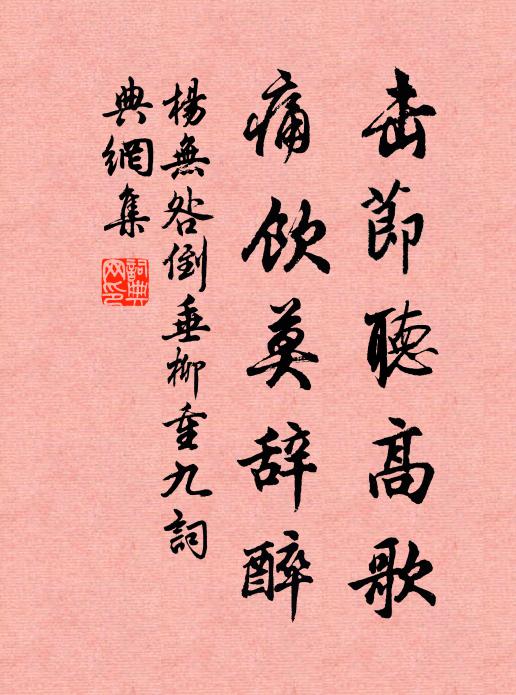 击節聽高歌
痛飲莫辞醉
楊無咎倒垂柳重九詞
典網集
詞典
网印